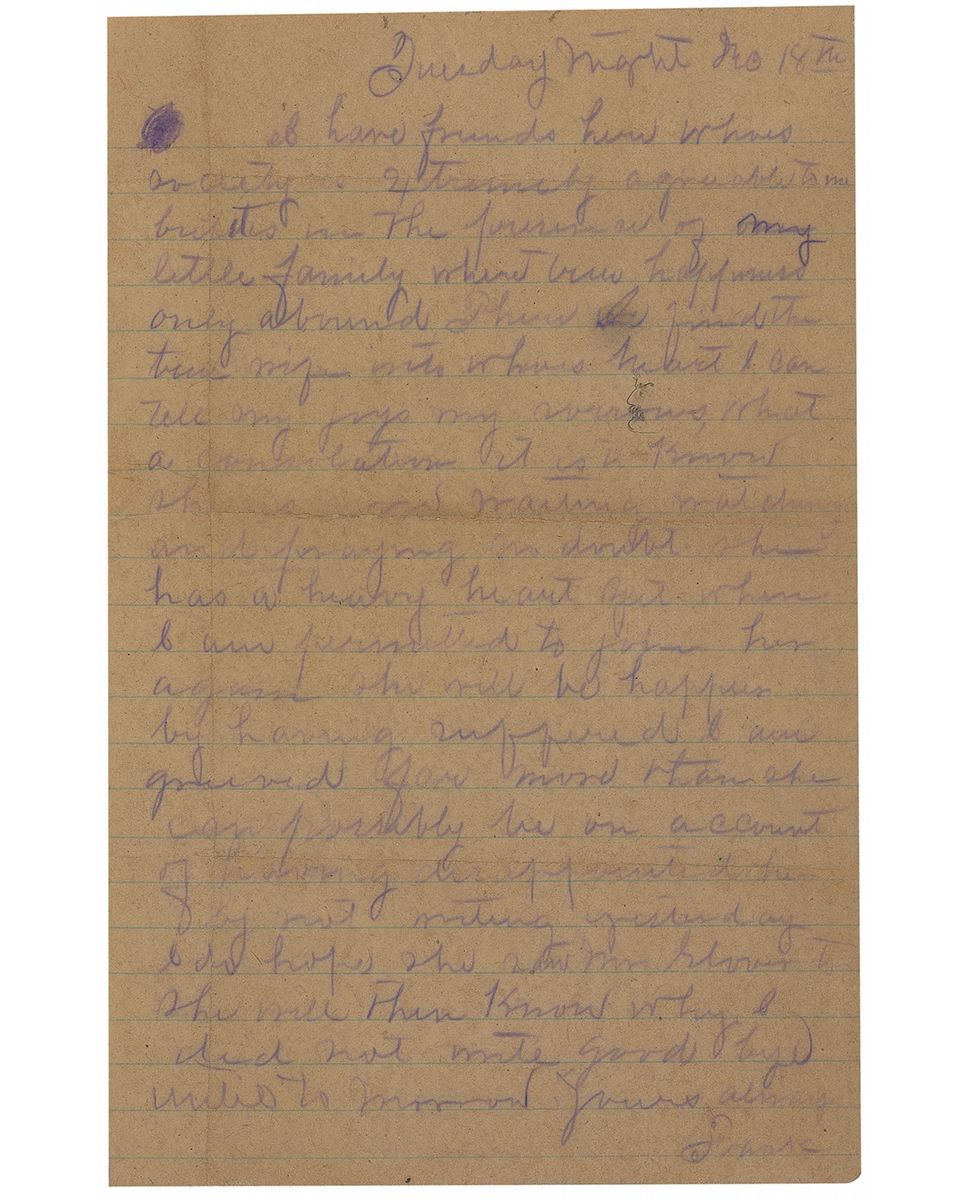 Tuesday Night Dec 18th
I have friends here whoes
society is extremely agreeable to me
but its in the presence of my
little family where true happiness
only abound There find the
true wife into whoes heart I can
tell my joys my sorrows, what
a consolation it is to Know
she is waiting watching
and praying no doubt she
has a heavy heart yet when
I am permitted to join her
again she will be happier
by having suffered I am
grieved far more than she
can possibly be on account
of having disappointed her
by not writing yesterday
I do hope she saw Mr Glover
she will then Know why I
did not write good bye
until to morrow Yours always
Frank